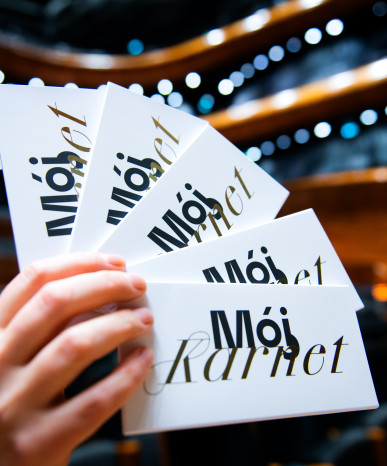 Mój
Karnet
Mój
Karnet
Mój
Karnet
Mój
Karnet
Mój
Karnet